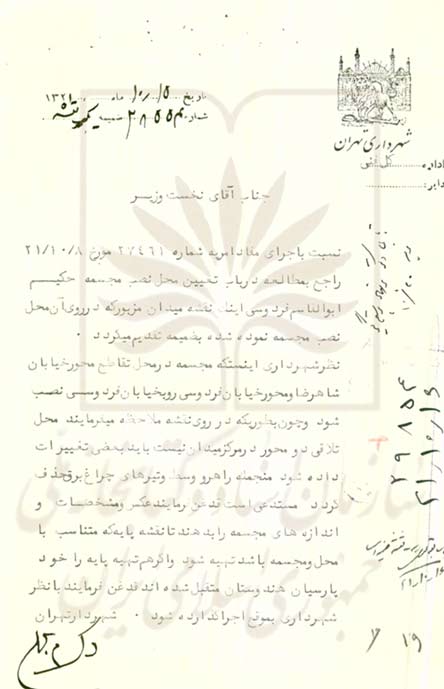 شهرداری تهران
اداره
دایره
تاریخ ۱۰/۱۵ ماه ۱۳۲۱
شماره ضمیمه یکبرگ نقشه
جناب آقای نخست وزیر
نسبت باجرای مفاد امریه شماره ۲۷۴۶۱ مورخ ۲۱/۱۰/۸
راجع بمطالعه درباب تعیین محل نصب مجسمه حکیم
ابوالقاسم فردوسی اینک نقشه میدان مزبور که در روی آن محل
نصب مجسمه نموده شده بضمیمه تقدیم میگردد ۰
نظر شهرداری اینستکه مجسمه در محل تقاطع محور خیابان
شاهرضا و محور خیابان فردوسی رو بخیابان فردوسی نصب
شود و چون بطوریکه در روی نقشه ملاحظه میفرمایند محل
تلاقی دو محور در مرکز میدان نیست باید بعضی تغییرات
داده شود منجمله راهرو وسط و تیرهای چراغ برق حذف
گردد مستدعی است قدغن فرمایند عکس و مشخصات و
اندازه های مجسمه را بدهند تا نقشه پایه که متناسب با
محل و مجسمه باشد تهیه شود و اگر هم تهیه پایه را خود
پارسیان هندوستان متقبل شده اند قدغن فرمایند با نظر
شهرداری بموقع اجرا گذارده شود ۰ شهردار تهران
۲۹۸۵۴
۲۱/۱۰/۱۶
۱۹